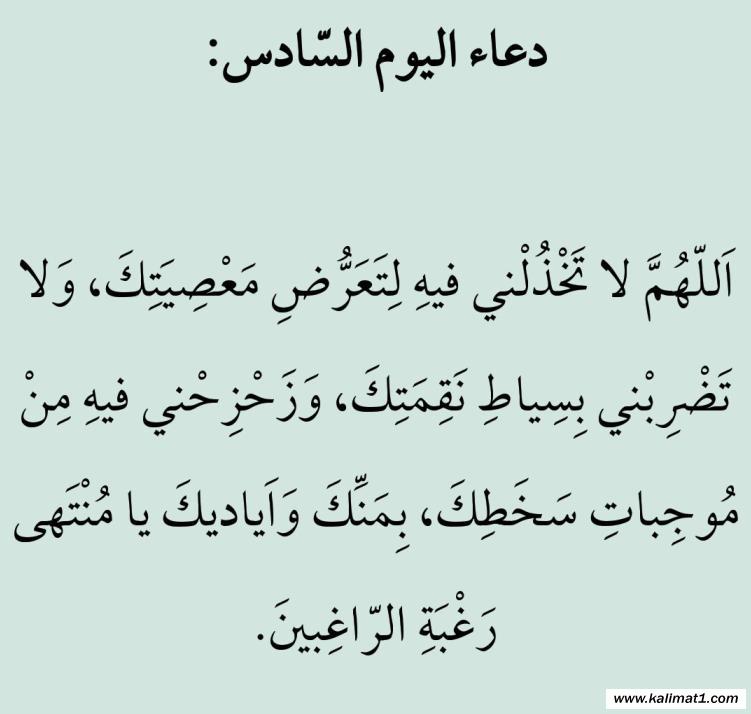 دعاء اليوم السّادس:
اَللّهُمَّ لا تَخْذُلْني فيهِ لِتَعَرُّضِ مَعْصِيَتِكَ، وَلا
تَضْرِبْني بِسِياطِ نَقِمَتِكَ، وَزَحْزِحْني فيهِ مِنْ
مُوجِباتِ سَخَطِكَ، بِمَنِّكَ وَاَياديكَ يا مُنْتَهى
رَغْبَةِ الرّاغِبينَ.
www.kalimat1.com